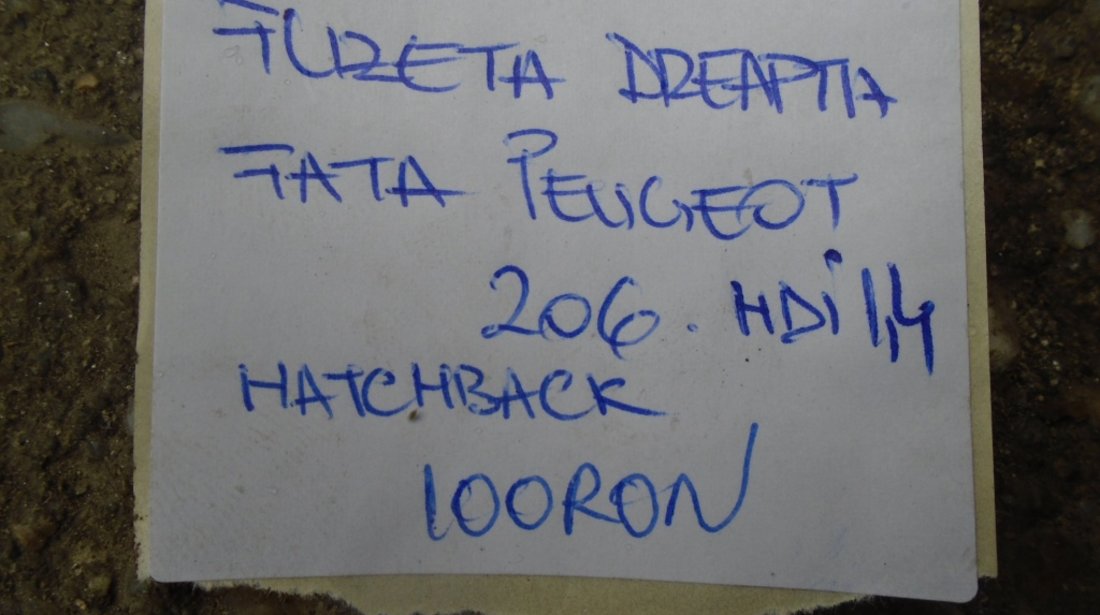 FUZETA DREAPTA
FATA PEUGEOT
206. HDi 1,4
HATCHBACK
100RON